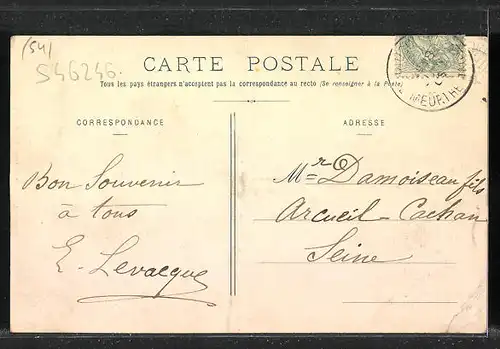 (54)
S46246.
CARTE POSTALE
Tous les pays étrangers n'acceptent pas la correspondance au recto (Se renseigner à la Poste)
CORRESPONDANCE
ADRESSE
Bon Souvenir
à tous
E. Levacque
Mr Damoiseau fils
Arcueil-Cachan
Seine
MEURTHE